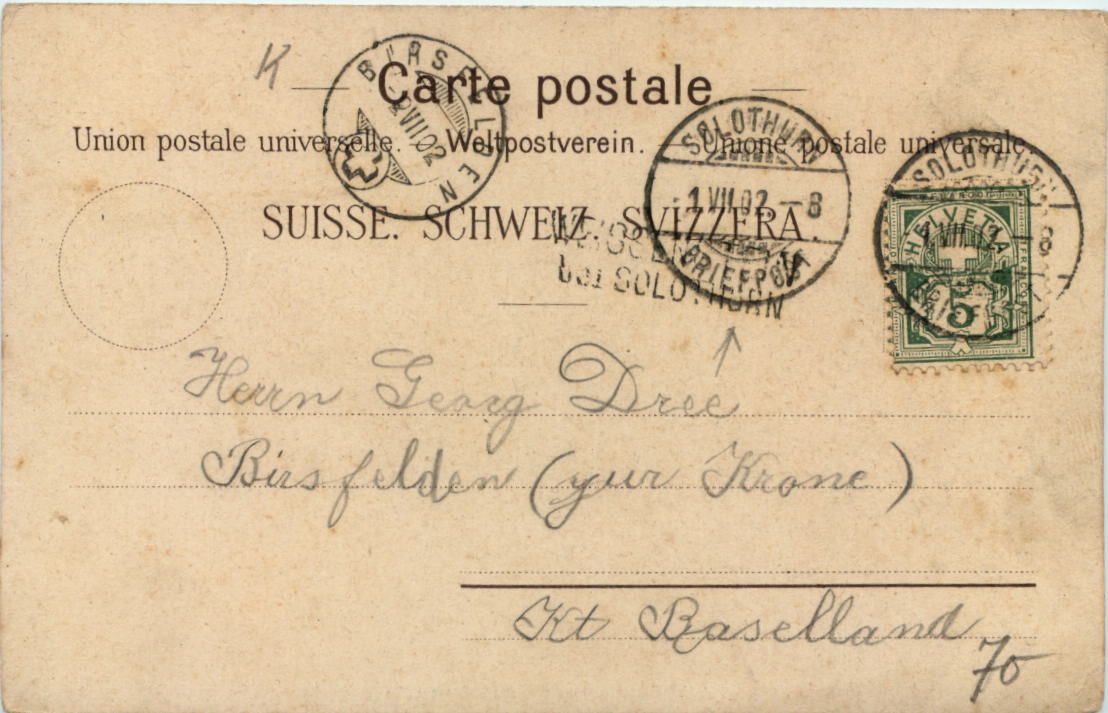 K
Carte postale
Union postale universelle. Weltpostverein. Unione postale universale.
SUISSE. SCHWEIZ. SVIZZERA.
BIRSFELDEN
2 VII 02
SOLOTHURN
1 VII 02 – 8
BRIEFPOST
SOLOTHURN
8
HELVETIA
FRANCO
5
bei SOLOTHURN
Herrn Georg Dreé
Birsfelden (zur Krone)
Kt Baselland
70